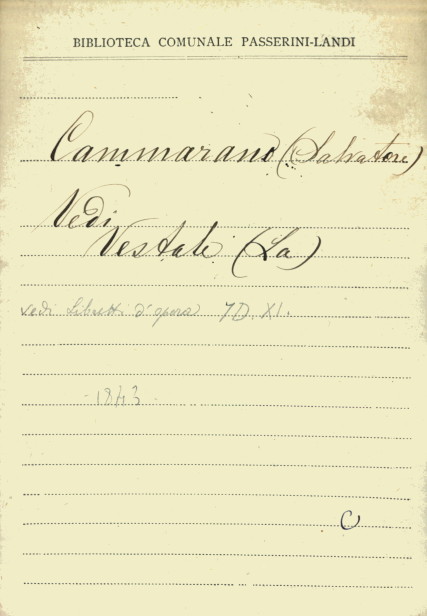 BIBLIOTECA COMUNALE PASSERINI-LANDI
Cammarano (Salvatore)
Vedi
Vestale (La)
vedi Libretti d'opera 7D. XI.
1843
C